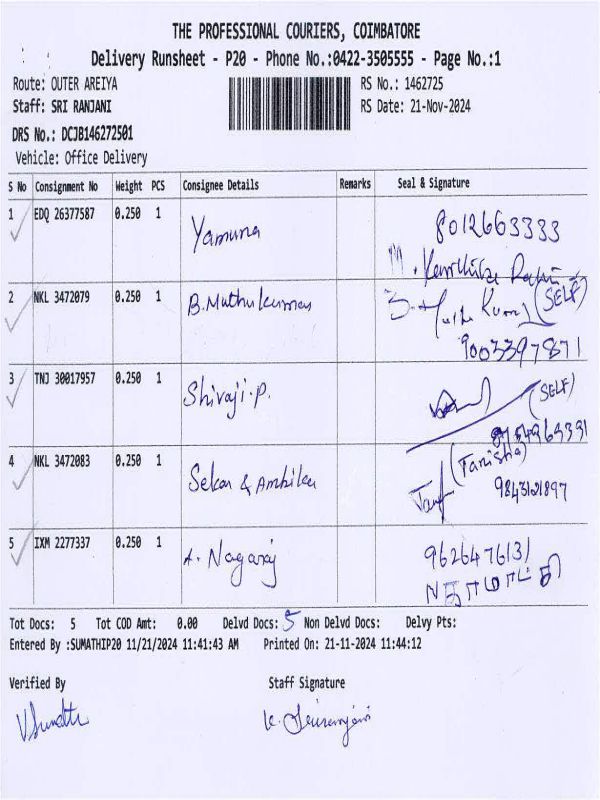 THE PROFESSIONAL COURIERS, COIMBATORE
Delivery Runsheet - P20 - Phone No.:0422-3505555 - Page No.:1
Route: OUTER AREIYA RS No.: 1462725
Staff: SRI RANJANI RS Date: 21-Nov-2024
DRS No.: DCJB146272501
Vehicle: Office Delivery
S No Consignment No Weight PCS Consignee Details Remarks Seal & Signature
1 EDQ 26377587 0.250 1 Yamuna 8012663333
M.
2 NKL 3472079 0.250 1 B. Muthukumar (SELF)
9003397871
3 TNJ 30017957 0.250 1 Shivaji.P. (SELF)
4 NKL 3472083 0.250 1 Sekar & Ambika (Tanisha)
9843121897
5 IXM 2277337 0.250 1 A. Nagaraj 9626476131
Tot Docs: 5 Tot COD Amt: 0.00 Delvd Docs: 5 Non Delvd Docs: Delvy Pts:
Entered By :SUMATHIP20 11/21/2024 11:41:43 AM Printed On: 21-11-2024 11:44:12
Verified By Staff Signature